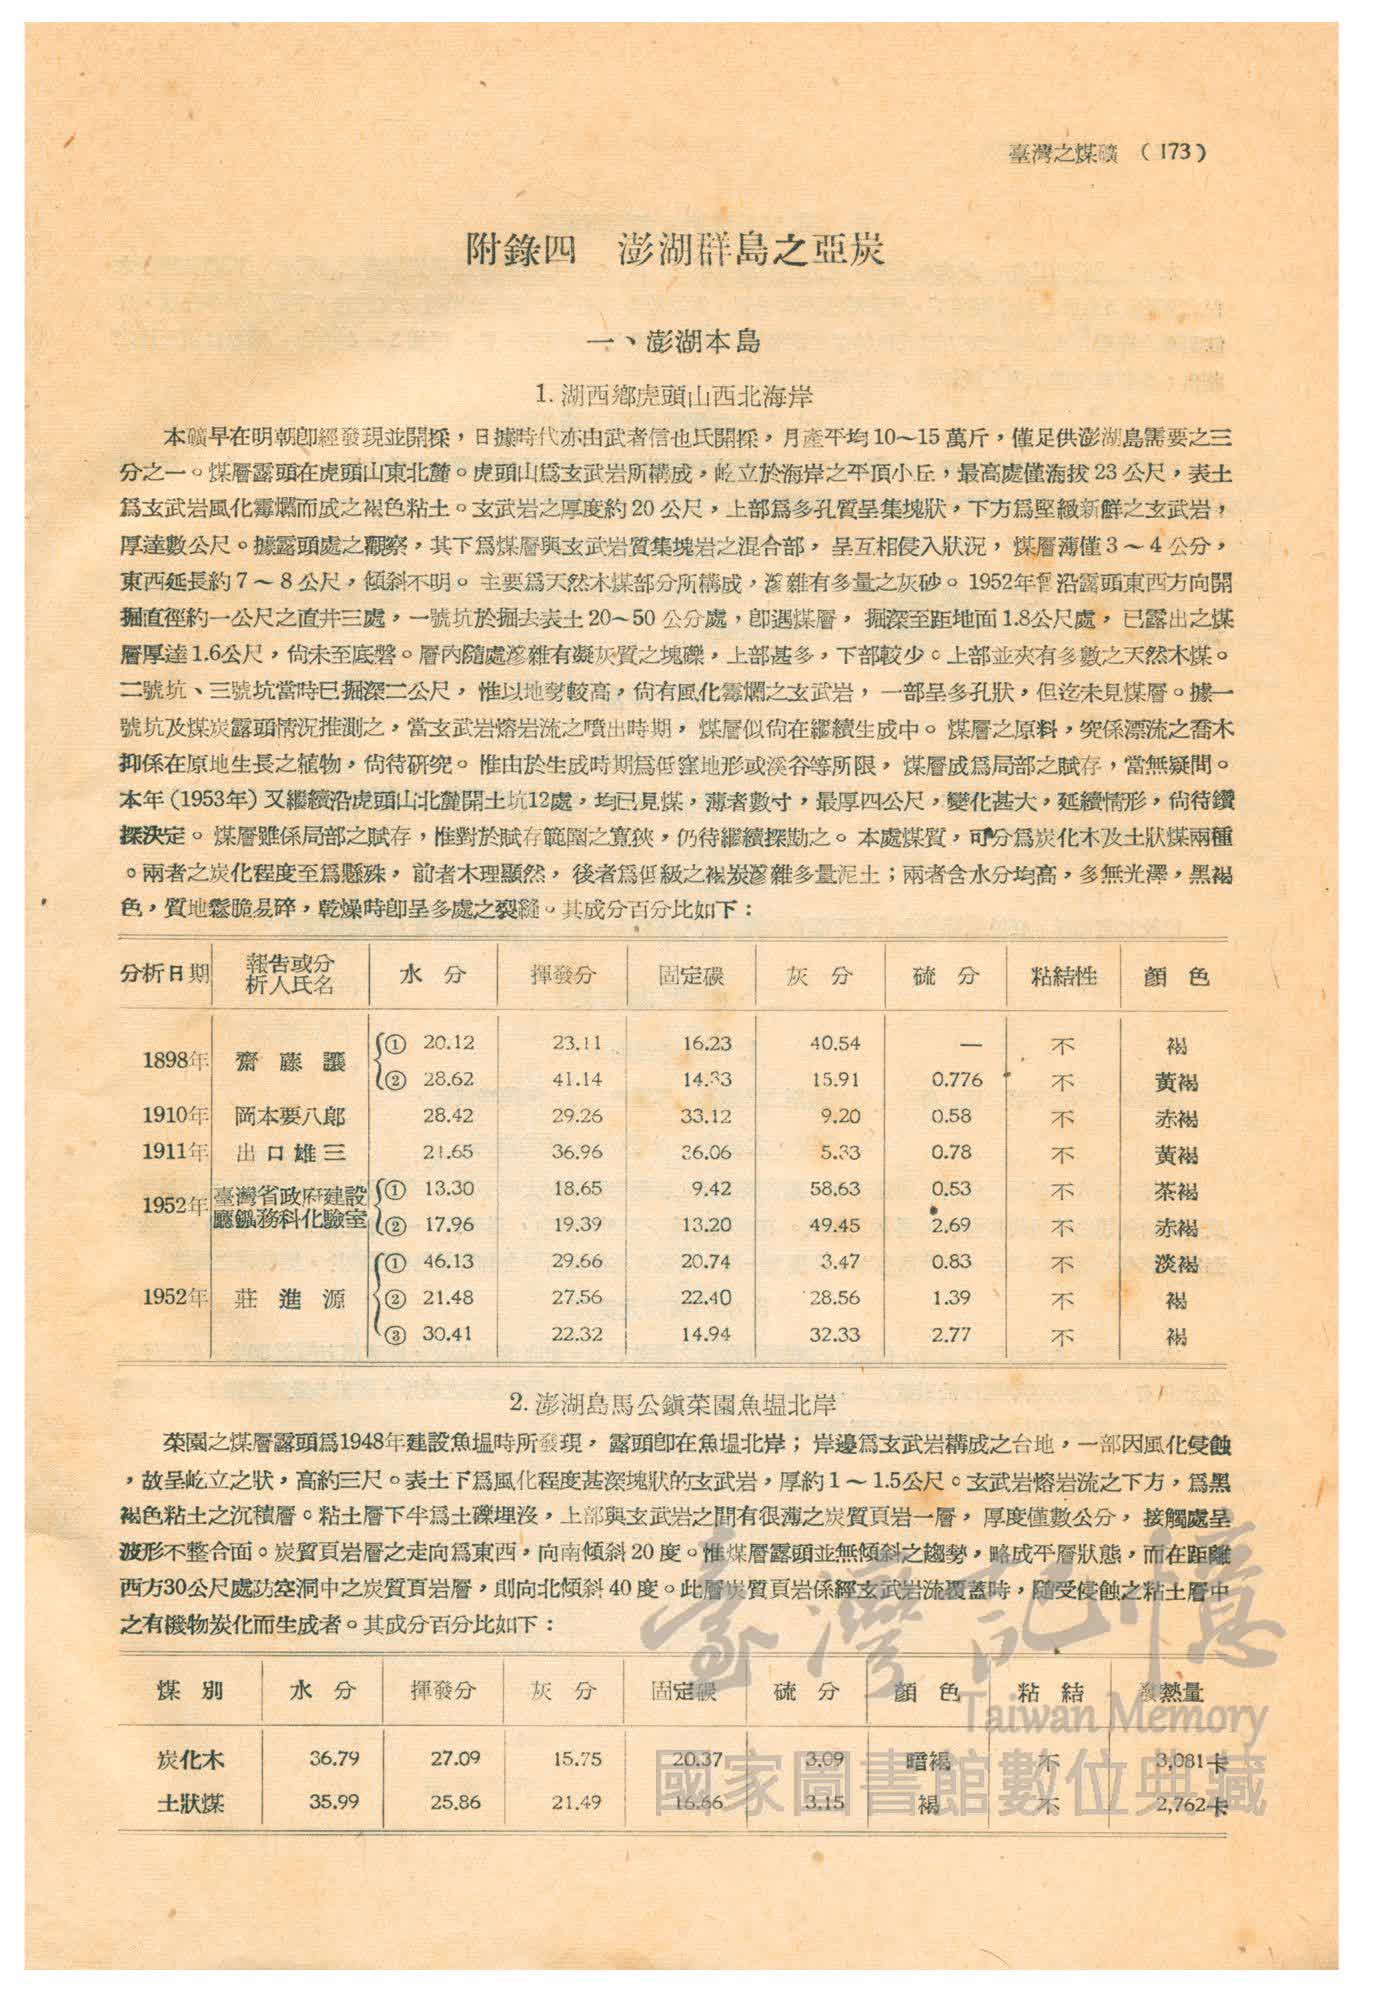 臺灣之煤礦 (173)
附錄四 澎湖群島之亞炭
一、澎湖本島
1. 湖西鄉虎頭山西北海岸
本礦早在明朝卽經發現並開採，日據時代亦由武者信也氏開採，月產平均10～15萬斤，僅足供澎湖島需要之三
分之一。煤層露頭在虎頭山東北麓。虎頭山爲玄武岩所構成，屹立於海岸之平頂小丘，最高處僅海拔23公尺，表土
爲玄武岩風化霉爛而成之褐色粘土。玄武岩之厚度約20公尺，上部爲多孔質呈集塊狀，下方爲堅緻新鮮之玄武岩，
厚達數公尺。據露頭處之觀察，其下爲煤層與玄武岩質集塊岩之混合部，呈互相侵入狀況，煤層薄僅3～4公分，
東西延長約7～8公尺，傾斜不明。主要爲天然木煤部分所構成，滲雜有多量之灰砂。1952年曾沿露頭東西方向開
掘直徑約一公尺之直井三處，一號坑於掘去表土20～50公分處，卽遇煤層，掘深至距地面1.8公尺處，已露出之煤
層厚達1.6公尺，尙未至底磐。層內隨處滲雜有凝灰質之塊礫，上部甚多，下部較少。上部並夾有多數之天然木煤。
二號坑、三號坑當時已掘深二公尺，惟以地勢較高，尙有風化霉爛之玄武岩，一部呈多孔狀，但迄未見煤層。據一
號坑及煤炭露頭情況推測之，當玄武岩熔岩流之噴出時期，煤層似尙在繼續生成中。煤層之原料，究係漂流之喬木
抑係在原地生長之植物，尙待研究。惟由於生成時期爲低窪地形或溪谷等所限，煤層成爲局部之賦存，當無疑問。
本年(1953年)又繼續沿虎頭山北麓開土坑12處，均已見煤，薄者數寸，最厚四公尺，變化甚大，延續情形，尙待鑽
探決定。煤層雖係局部之賦存，惟對於賦存範圍之寬狹，仍待繼續探勘之。本處煤質，可分爲炭化木及土狀煤兩種
。兩者之炭化程度至爲懸殊，前者木理顯然，後者爲低級之褐炭滲雜多量泥土；兩者含水分均高，多無光澤，黑褐
色，質地鬆脆易碎，乾燥時卽呈多處之裂縫。其成分百分比如下：
分析日期 報告或分析人氏名 水 分 揮發分 固定碳 灰 分 硫 分 粘結性 顏 色
1898年 齋藤讓 ① 20.12 23.11 16.23 40.54 — 不 褐
② 28.62 41.14 14.33 15.91 0.776 不 黃褐
1910年 岡本要八郎 28.42 29.26 33.12 9.20 0.58 不 赤褐
1911年 出口雄三 21.65 36.96 36.06 5.33 0.78 不 黃褐
1952年 臺灣省政府建設廳鑛務科化驗室 ① 13.30 18.65 9.42 58.63 0.53 不 茶褐
② 17.96 19.39 13.20 49.45 2.69 不 赤褐
① 46.13 29.66 20.74 3.47 0.83 不 淡褐
1952年 莊進源 ② 21.48 27.56 22.40 28.56 1.39 不 褐
③ 30.41 22.32 14.94 32.33 2.77 不 褐
2. 澎湖島馬公鎭菜園魚塭北岸
菜園之煤層露頭爲1948年建設魚塭時所發現，露頭卽在魚塭北岸；岸邊爲玄武岩構成之台地，一部因風化侵蝕
，故呈屹立之狀，高約三尺。表土下爲風化程度甚深塊狀的玄武岩，厚約1～1.5公尺。玄武岩熔岩流之下方，爲黑
褐色粘土之沉積層。粘土層下半爲土礫埋沒，上部與玄武岩之間有很薄之炭質頁岩一層，厚度僅數公分，接觸處呈
波形不整合面。炭質頁岩層之走向爲東西，向南傾斜20度。惟煤層露頭並無傾斜之趨勢，略成平層狀態，而在距離
西方30公尺處功空洞中之炭質頁岩層，則向北傾斜40度。此層炭質頁岩係經玄武岩流覆蓋時，隨受侵蝕之粘土層中
之有機物炭化而生成者。其成分百分比如下：
煤 別 水 分 揮發分 灰 分 固定碳 硫 分 顏 色 粘 結 發熱量
炭化木 36.79 27.09 15.75 20.37 3.09 暗褐 不 3,081卡
土狀煤 35.99 25.86 21.49 16.66 3.15 褐 不 2,762卡
臺灣記憶
Taiwan Memory
國家圖書館數位典藏